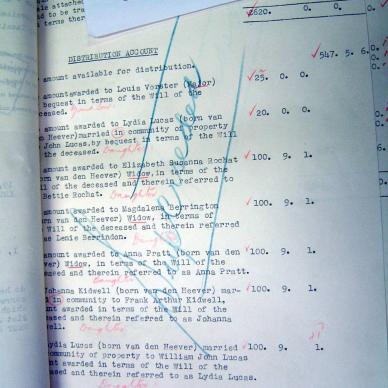 £620. 0. 0.
DISTRIBUTION ACCOUNT
547. 5. 6.
amount available for distribution.
amount awarded to Louis Vorster (Major)
bequest in terms of the Will of the
ceased. 25. 0. 0.
amount awarded to Lydia Lucas (born van
en Heever) married in community of property
John Lucas, by bequest in terms of the Will
the deceased. Daughter 20. 0. 0.
amount awarded to Elizabeth Susanna Rochat
orn van den Heever) Widow, in terms of the
ll of the deceased and therein referred to
Bettie Rochat. Daughter 100. 9. 1.
amount awarded to Magdalena Berrington
orn van den Heever) Widow, in terms of
Will of the deceased and therein referred
as Lenie Berrindon. Daughter 100. 9. 1.
amount awarded to Anna Pratt (born van den
ver) Widow, in terms of the Will of the
eased and therein referred to as Anna Pratt. 100. 9. 1.
Daughter
Johanna Kidwell (born van den Heever) mar-
in community to Frank Arthur Kidwell,
unt awarded in terms of the Will of the
eased and therein referred to as Johanna
well. Daughter 100. 9. 1.
Lydia Lucas (born van den Heever) married
community of property to William John Lucas
nt awarded in terms of the Will of the
eased and therein referred to as Lydia Lucas. 100. 9. 1.
Daughter